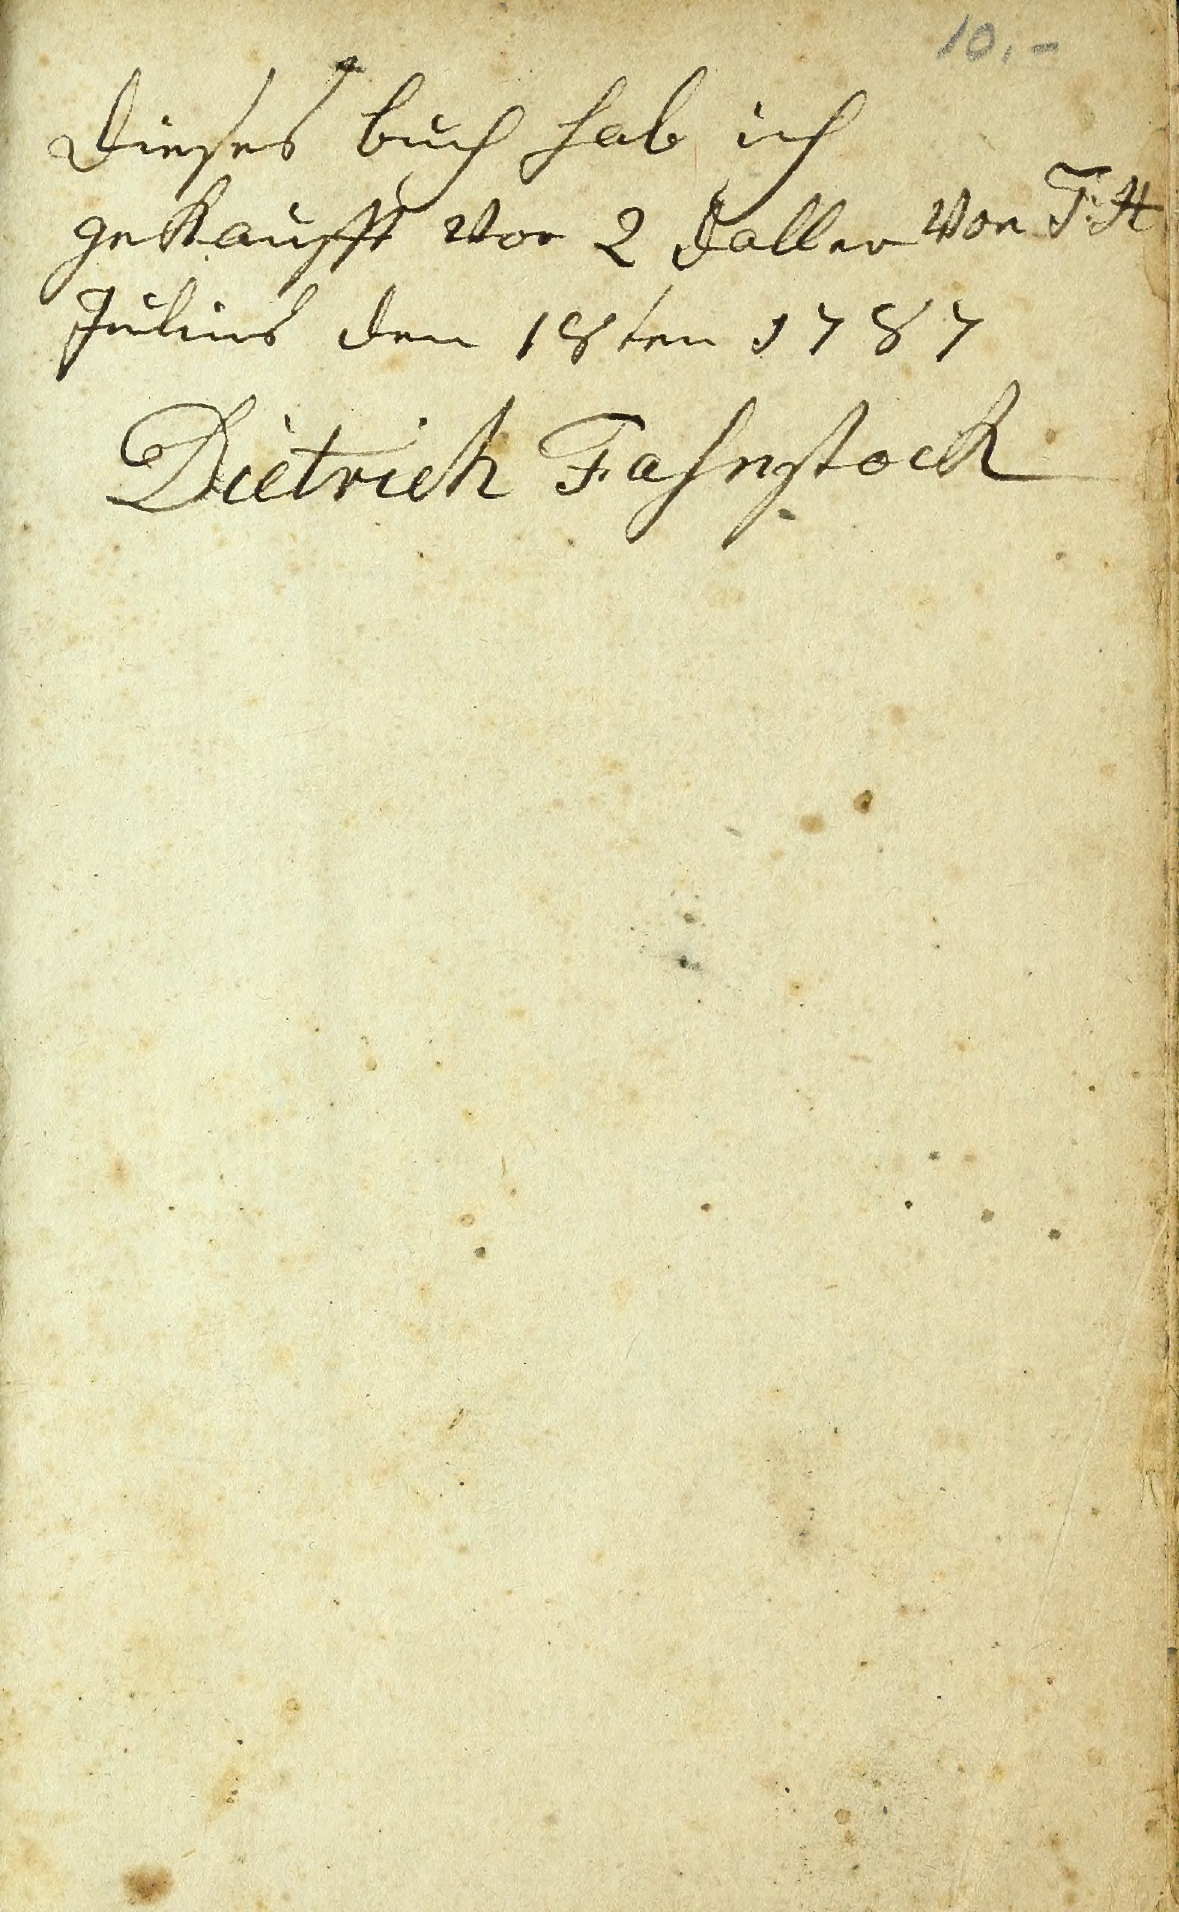 10.-
Dieses buch hab ich
gekaufft Vor 2 Daller Von T.H
Julius den 18ten 1787
Dietrich Fahnstock